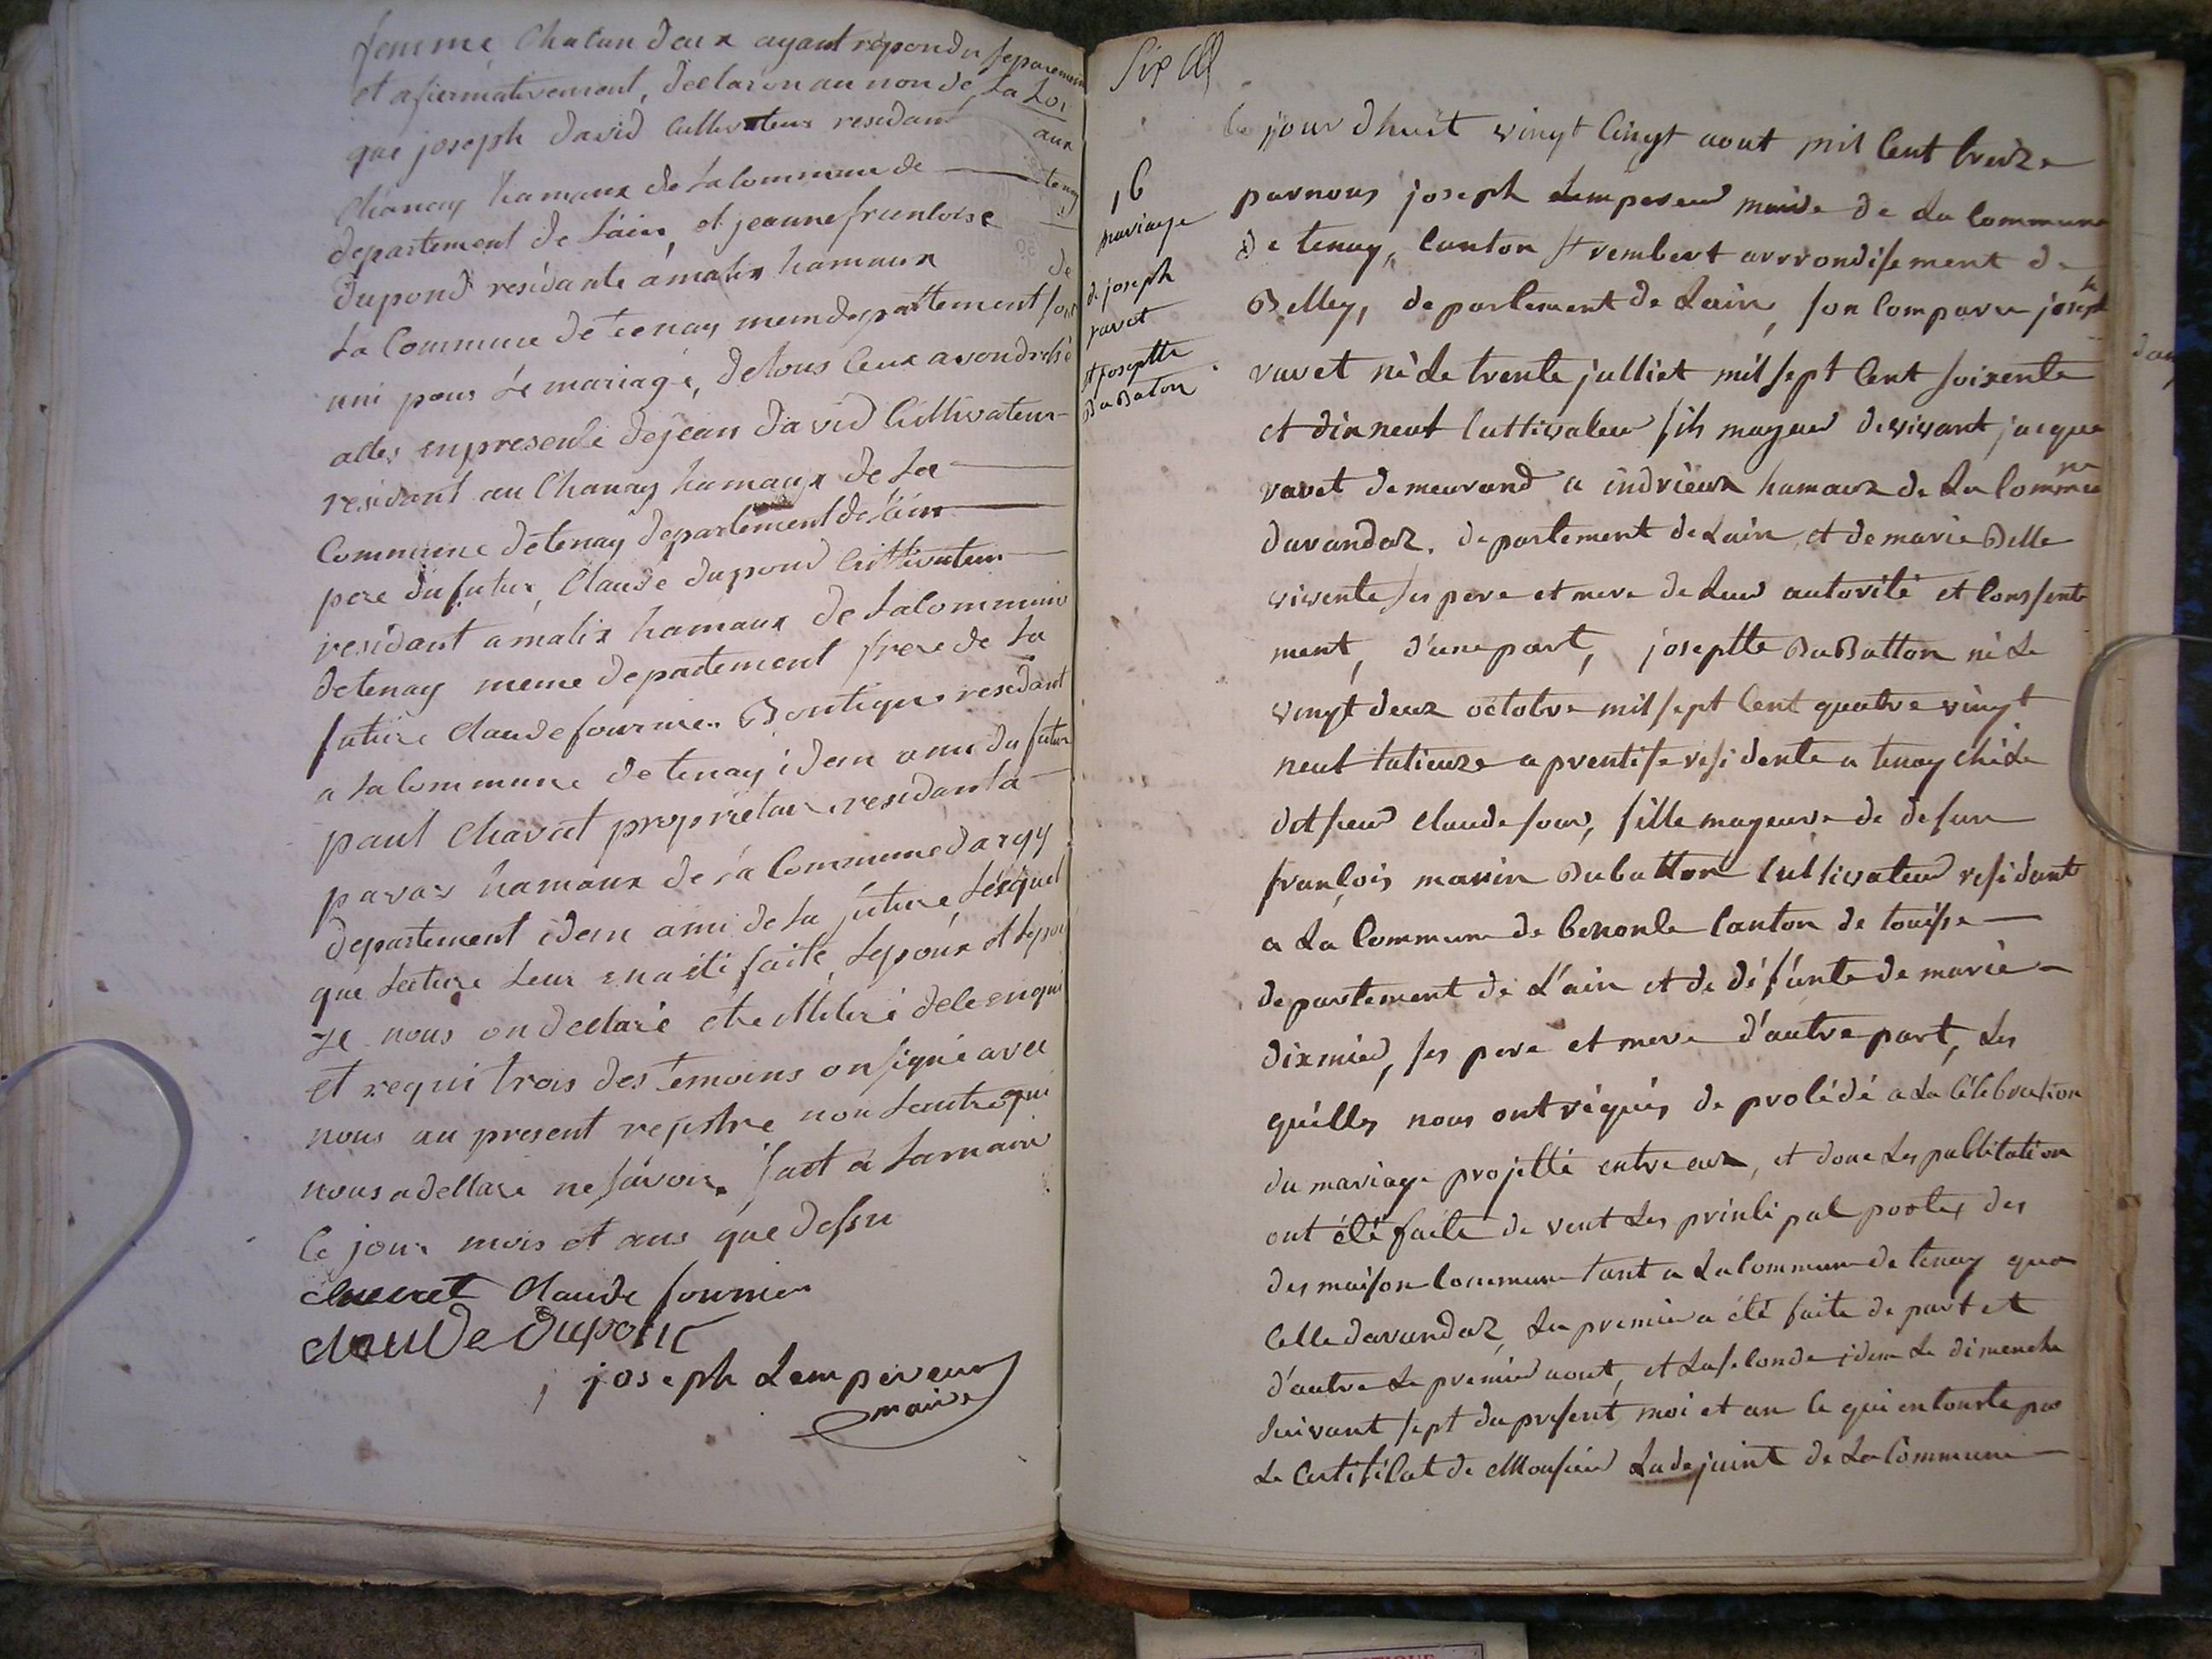 femme, Chacun deux ayant repondu separemen
et afiermativement, declaron au non de La Loi
que joseph david Cultivateur residant aux
Chanay hamaux de La Commune de tenay
departement de Lain, et jeanne francloise
dupond residante a malix hamaux de
La Commune de Tenay mem departement son
uni pour Le mariage, de tous Ceux avon dressé
actes en presence de jean david Cultivateur
residant au Chanay hamaux de La
Commune de tenay departement de Lain
pere du futur, Claude dupond Cultivateur
residant a malix hamaux de La Commune
de tenay meme departement frere de La
future Claude fournier residant
a La Commune de tenay idem ami du futur
paul Chavat proprietaire residant a
hamaux de La Commune dargy
departement idem ami de La future, Lesquel
que Lecture Leur en a été faite, Lepoux et Lepou
ze nous on declaré etre de ce enqui
et requi trois des temoins on signé avec
nous au present rejistre non Lautre qui
nous a dellare ne savoir. fait a La mairi
Ce jour mois et ans que dessu
Chavat Claude fournier
claude dupont
joseph Lempereur
maire
Six
16
mariage
de joseph
ravet
et joseptte
DuBaton
Ce jour dhuit vingt Cinqt aout mil Cent treize
par nous joseph Lempereur maire de La Commune
de tenay, Canton St rembert arrrondissement de
Belley, departement de Lain, son Comparu joseph
ravet né Le trente julliet mil sept Cent soixente
et dix neut Cultivateur fils mageur de vivant jacque
ravet demeurand a indrieux hamaux de La Comm
davandaz. departement de Lain, et de marie Belle
vivente ses pere et mere de Leur autorité et Conssente
ment, d'une part, joseptte DuBatton né Le
vingt deux octobre mil sept Cent quatre vingt
neut talieuze aprentise residente a tenay ché Le
dit sieur Claude four, fille mageure de defun
françois marin Dubatton Cultivateur residant
a La Commune de benonle Canton de touisse
departement de L'ain et de défunte de marie
dixmier, ses pere et mere d'autre part, Les
quélles nous ont réquis de prolédé a La Célébration
du mariage projetté entre eux, et donc Les publitation
ont été faite de vent Les prinlipal portes des
des maison Commune tant a La Commune de tenay qua
Celle davandaz, La premier a été faite de part et
d'autre Le premier aout, et La selonde idem Le dimenche
suivant sept du present moi et an Ce qui en Conste par
Le Certifilat de Monsieur Ladejuint de La Commune